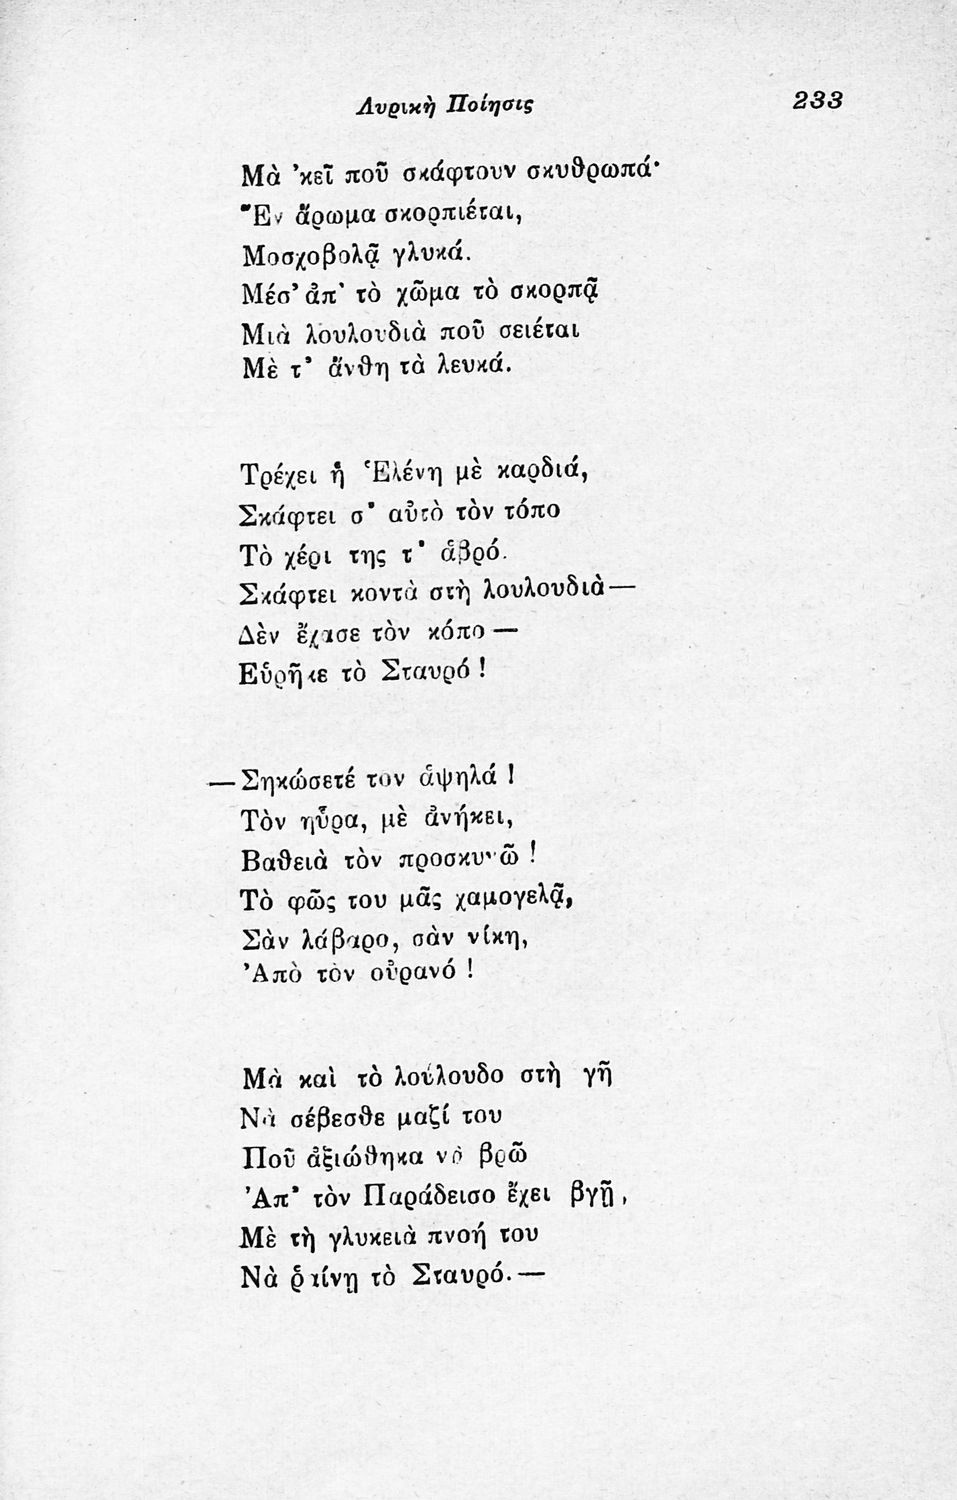 Λυρικὴ Ποίησις 233
Μὰ ’κεῖ ποῦ σκάφτουν σκυθρωπά·
Ἓν ἄρωμα σκορπιέται,
Μοσχοβολᾷ γλυκά.
Μέσ’ ἀπ’ τὸ χῶμα τὸ σκορπᾷ
Μιὰ λουλουδιὰ ποῦ σειέται
Μὲ τ’ ἄνθη τὰ λευκά.
Τρέχει ἡ Ἑλένη μὲ καρδιά,
Σκάφτει σ’ αὐτὸ τὸν τόπο
Τὸ χέρι της τ’ ἁβρό.
Σκάφτει κοντὰ στὴ λουλουδιὰ—
Δὲν ἔχασε τὸν κόπο—
Εὑρῆκε τὸ Σταυρό!
—Σηκώσετέ τον ἁψηλά!
Τὸν ηὗρα, μὲ ἀνήκει,
Βαθειὰ τὸν προσκυνῶ!
Τὸ φῶς του μᾶς χαμογελᾷ,
Σὰν λάβαρο, σὰν νίκη,
Ἀπὸ τὸν οὐρανό!
Μὰ καὶ τὸ λούλουδο στὴ γῆ
Νὰ σέβεσθε μαζί του
Ποῦ ἀξιώθηκα νὰ βρῶ
Ἀπ’ τὸν Παράδεισο ἔχει βγῇ,
Μὲ τὴ γλυκειὰ πνοή του
Νὰ ῥαίνῃ τὸ Σταυρό.—